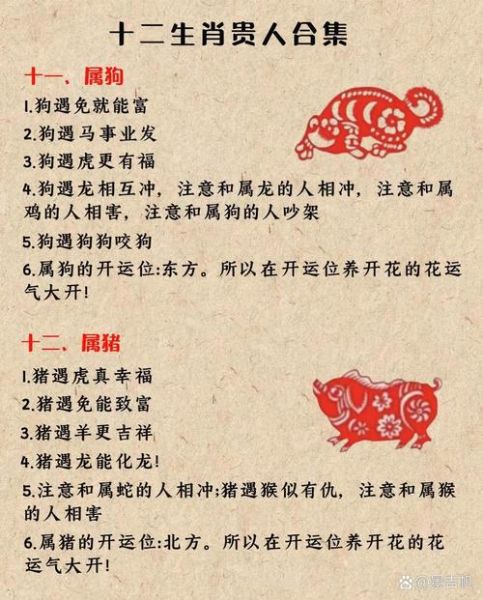 十二生肖贵人合集
十一、属狗
1.狗遇免就能富
2.狗遇马事业发
3.狗遇虎更有福
4.狗遇龙相互冲，注意和属龙的人相冲，注意和属
鸡的人相害，注意和属狗的人吵架
5.狗遇狗狗咬狗
6.属狗的开运位:东方。所以在开运位养开花的花运
气大开!
十二、属猪
1.猪遇虎真幸福
2.猪遇免能致富
3.猪遇羊更吉祥
4.猪遇龙能化龙!
5.注意和属蛇的人相冲:猪遇猴似有仇，注意和属猴
的人相害
6.属猪的开运位:北方。所以在开运位养开花的花
运气大开!